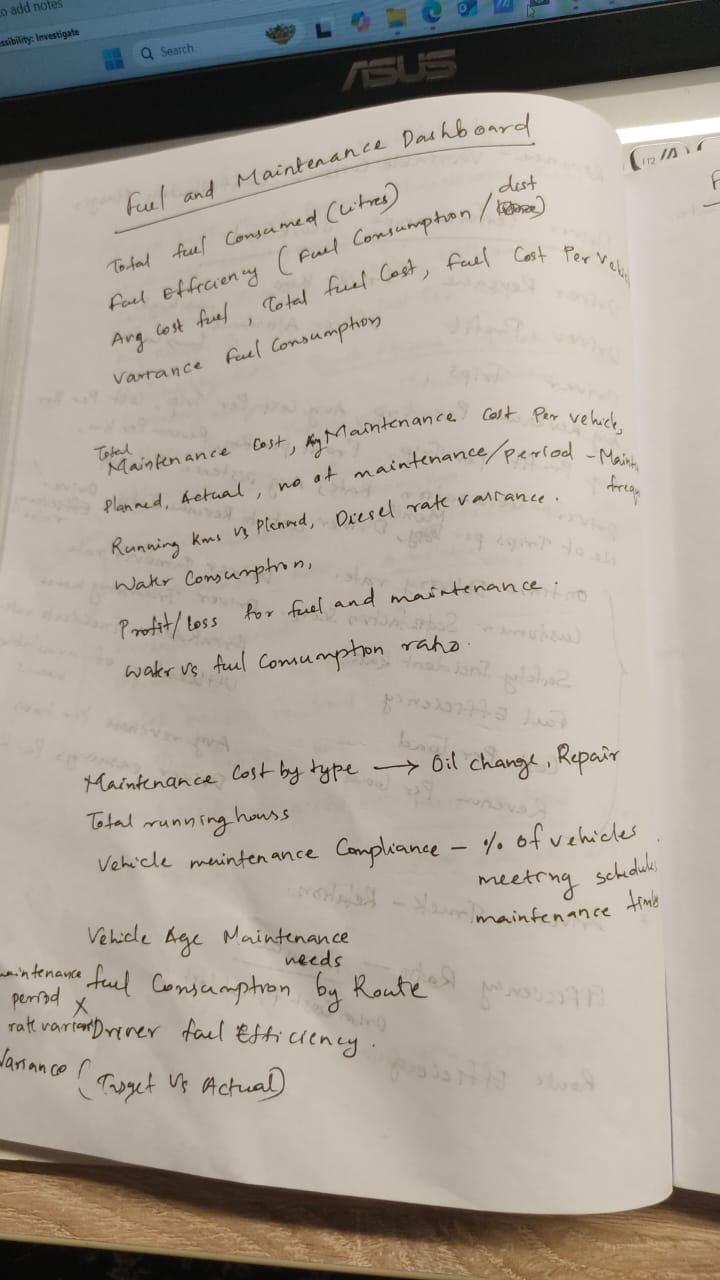 to add notes
ssibility: Investigate
Search
ASUS
Fuel and Maintenance Dashboard
Total fuel Consumed (Litres)
Fuel Efficiency (Fuel Consumption / dist)
Avg Cost fuel, Total fuel Cost, fuel Cost Per Vehi
Variance fuel Consumption
Total Maintenance Cost, Avg Maintenance Cost Per vehicle,
Planned, Actual, no of maintenance/period - Maint
freq
Running kms vs Planned, Diesel rate variance.
Water Consumption,
Profit/Loss for fuel and maintenance.
Water vs fuel Consumption ratio.
Maintenance Cost by type → Oil change, Repair
Total running hours
Vehicle maintenance Compliance - % of vehicles
meeting schedule
maintenance time
Vehicle Age Maintenance
needs
fuel Consumption by Route
maintenance
period x
rate variant
Driver fuel Efficiency.
Variance (Target Vs Actual)